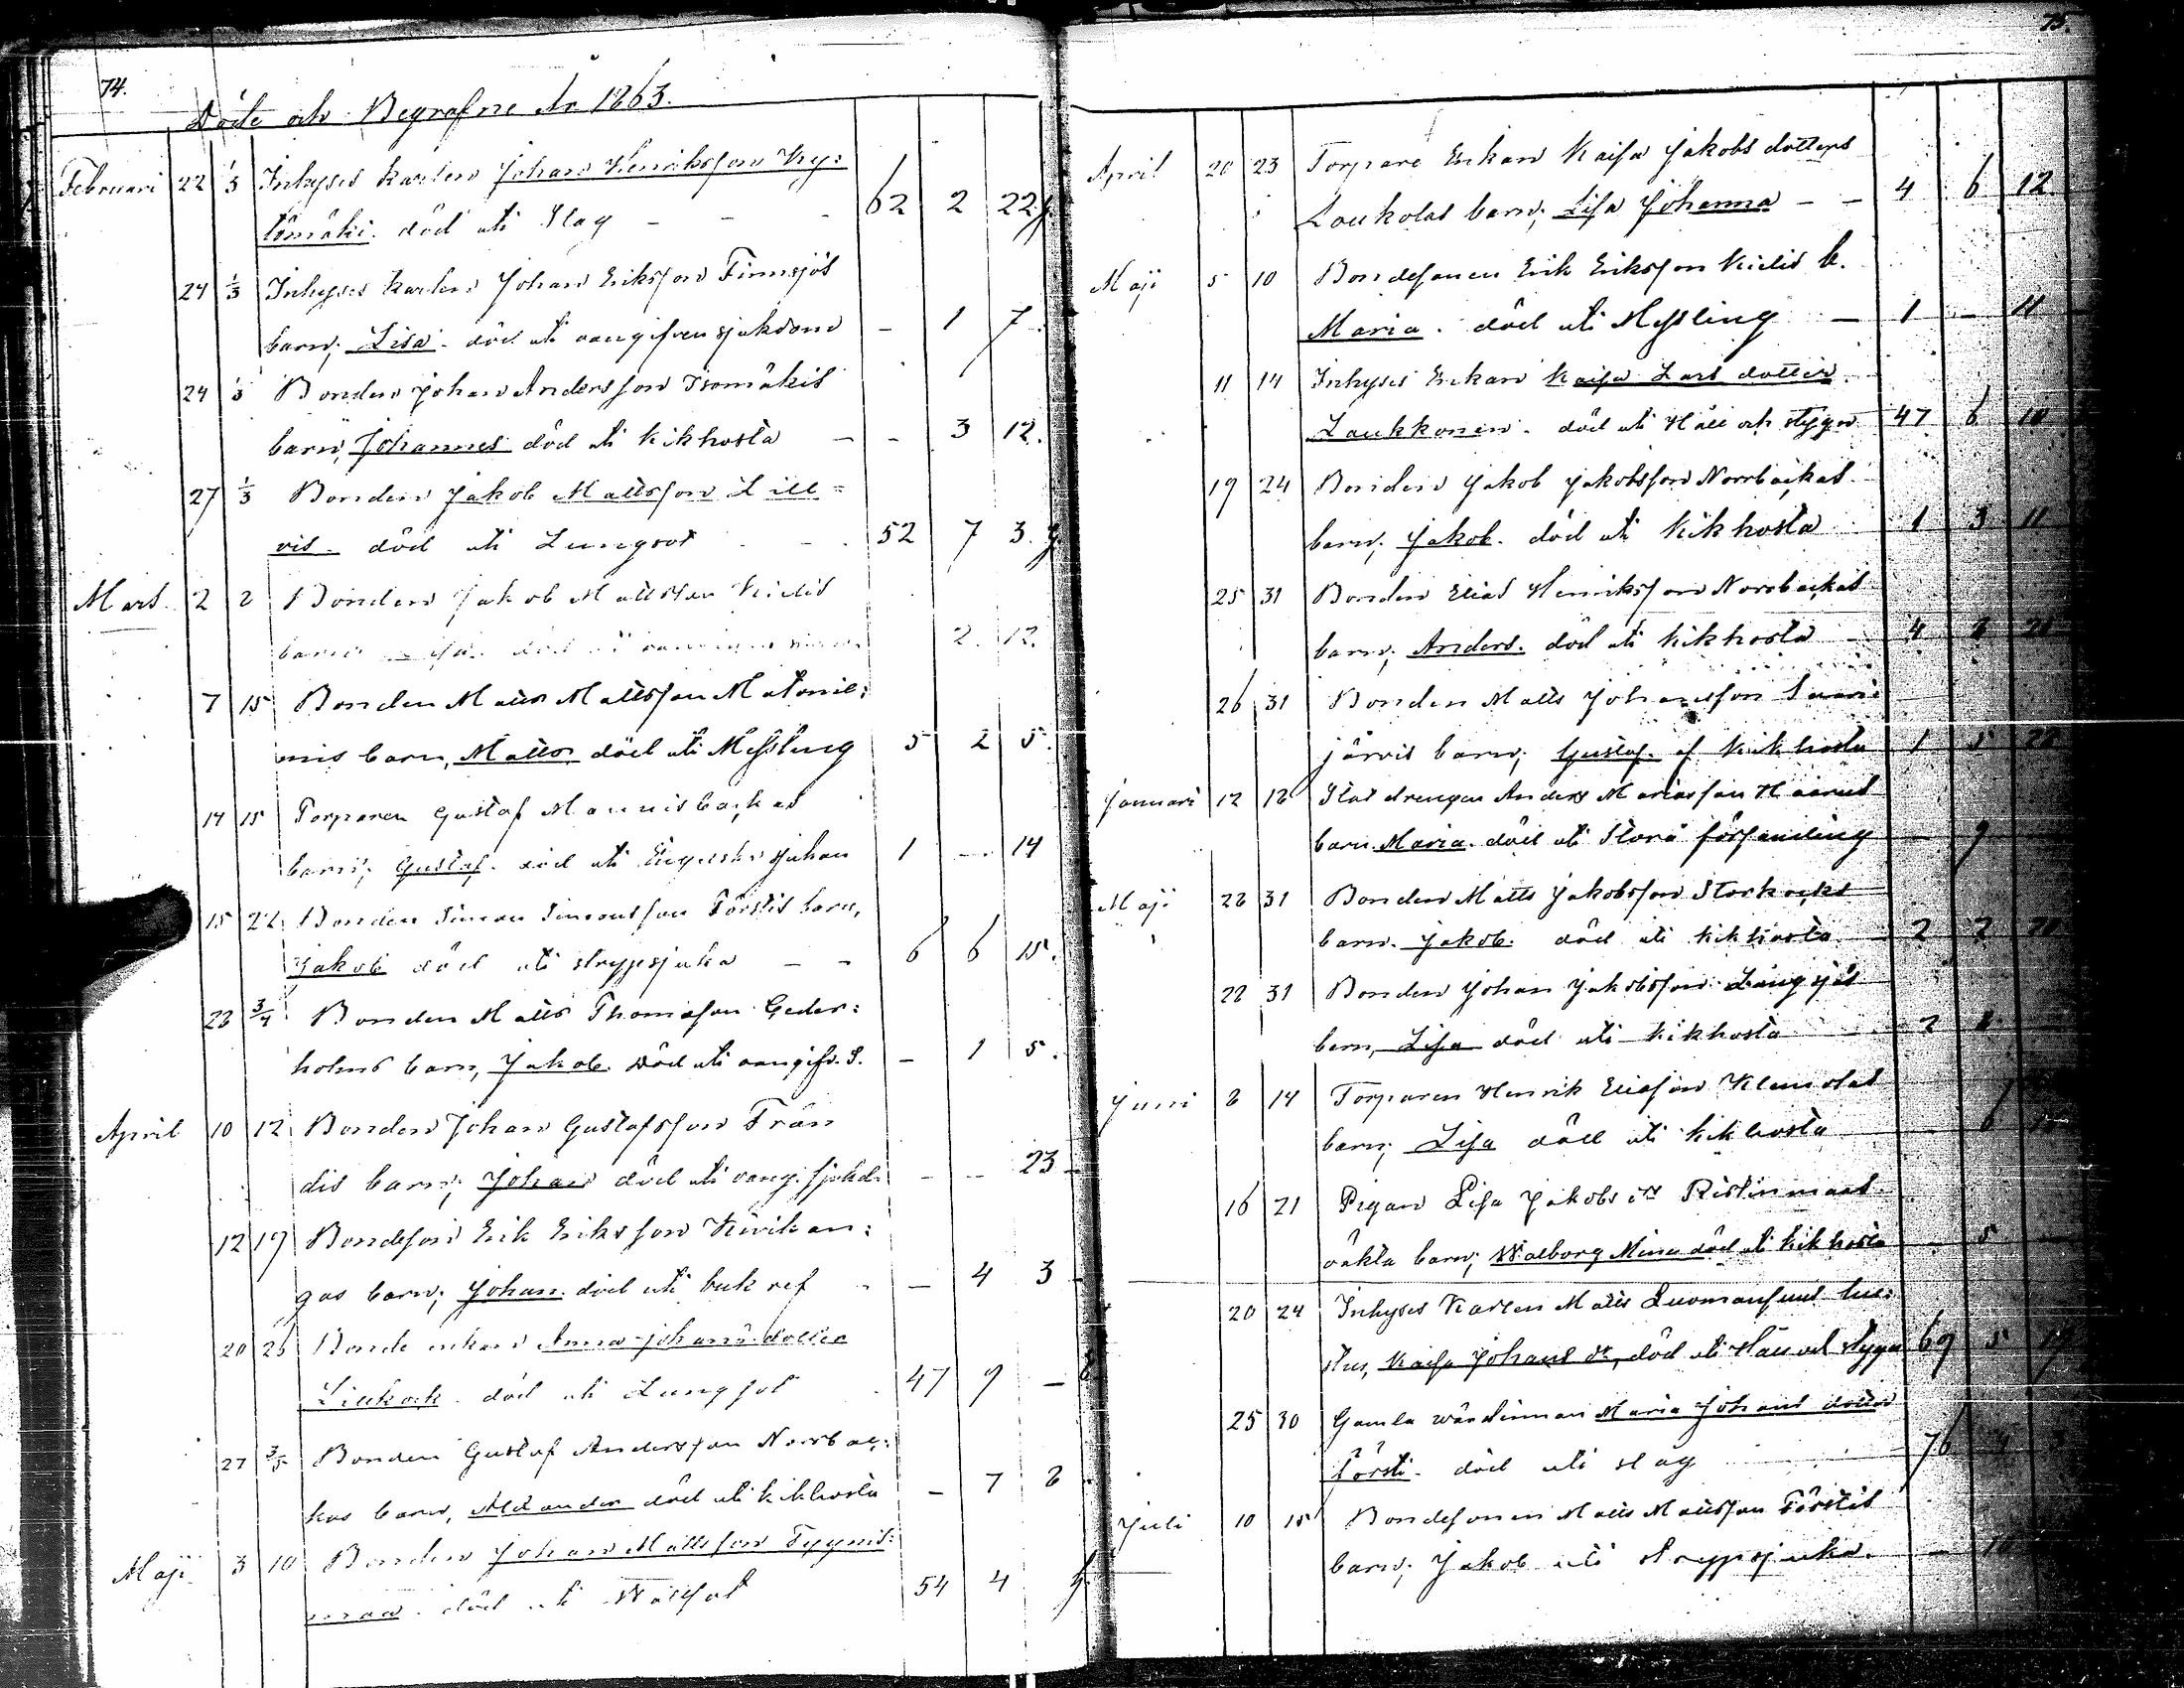 74.
Döde och Begrafne År 1863.
Februari 22 1/3 Inhyses karlen Johan Henriksson Ky=
tömäki. död uti Slag - - - 62 2 22.
24 1/3 Inhyses karlen Johan Eriksson Finnsjös
barn; Lisa. död uti oangifven sjukdom - 1 7.
24 1/3 Bonden Johan Andersson Isomäkis
barn, Johannes död uti kikhosta - - 3 12.
27 1/3 Bonden Jakob Mattsson Lill=
vis. död uti Lungsot 52 7 3.
Mars. 2 2 Bonden Jakob Mattsson
barn död 2. 12.
7 15 Bonden Matts Mattsson
nis barn, Matts död uti Messling 5 2 5.
14 15 Torparen Gustaf Mannisbackas
barn; Gustaf. död uti 1 - 14
15 22 Bonden Simon Simonsson Förstis barn,
Jakob död uti strypsjuka - - 6 6 15.
28 3/4 Bonden Matts Thomasson Ceder=
holms barn, Jakob. död uti oangifv. S. - 1 5.
April 10 12 Bonden Johan Gustafsson Frän
dis barn; Johan död uti oang. sjukd. - - 23
12 19 Bondeson Erik Eriksson Kivikan=
gas barn; Johan. död uti bukref - 4 3
20 26 Bonde enkan Anna Johans dotter
Lillkock. död uti Lungsot 47 9 -
27 3/5 Bonden Gustaf Andersson Norrbac=
kas barn, Alexander död uti kikhosta - 7 8
Maji. 3 10 Bonden Johan Mattsson Tyynis=
maa. död uti Wattsot 54 4
75.
April 20 23 Torpare Enkan Kaisa Jakobs dotters
Loukolas barn; Lisa Johanna - - 4 6 12
Maji 5 10 Bondesonen Erik Eriksson b.
Maria. död uti Messling - 1 - 11
11 14 Inhyses Enkan Kaisa Lars dotter
Laukkonen. död uti Håll och stygn 47 6 18
19 24 Bonden Jakob Jakobsson Norrbackas
barn; Jakob. död uti Kikhosta 1 3 11
25 31 Bonden Elias Henriksson Norrbackas
barn; Anders. död uti kikhosta 4
26 31 Bonden Matts Johansson Saari=
järvis barn; Gustaf. af Kikhosta 1 5 22
Januari 12 18 Statdrengen Anders Mariasson
barn Maria. död uti 9
Maji 28 31 Bonden Matts Jakobsson Storkocks
barn. Jakob. död uti kikhosta. 2 2
22 31 Bonden Johan Jakobsson Långsjös
barn, Lisa död uti kikhosta 2
Juni 8 14 Torparen Henrik Eliasson Klemolas
barn; Lisa död uti kikhosta 6
16 21 Pigan Lisa Jakobs dr Ristinmaas
oäkta barn; Walborg Mina död uti kikhosta 5
20 24 Inhyses Karlen Matts Luomansuus hu=
stru, Kaisa Johans dr, död uti Håll och stygn 69 5 19
25 30 Gamla wärdinnan Maria Johans dotter
Försti. död uti slag 76
Juli 10 15 Bondesonen Matts Mattsson Förstis
barn; Jakob uti strypsjuka. - 10